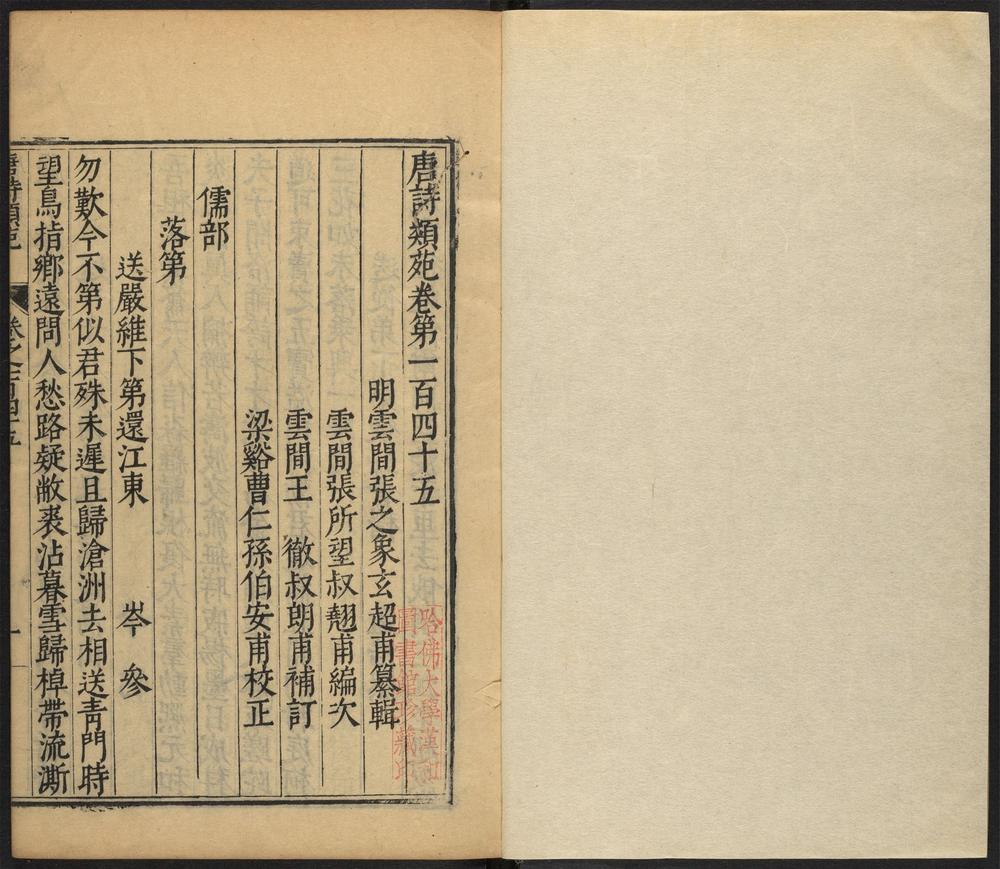 唐詩類苑卷第一百四十五
明雲間張之象玄超甫纂輯
雲間張所望叔翹甫編次
雲間王　徹叔朗甫補訂
梁谿曹仁孫伯安甫校正
儒部
落第
送嚴維下第還江東　　岑　參
勿歎今不第似君殊未遲且歸滄洲去相送靑門時
望鳥指鄉遠問人愁路疑敝裘沾暮雪歸棹帶流澌
唐詩類苑　卷之一百四十五　一
哈佛大學漢和
圖書館珍藏印